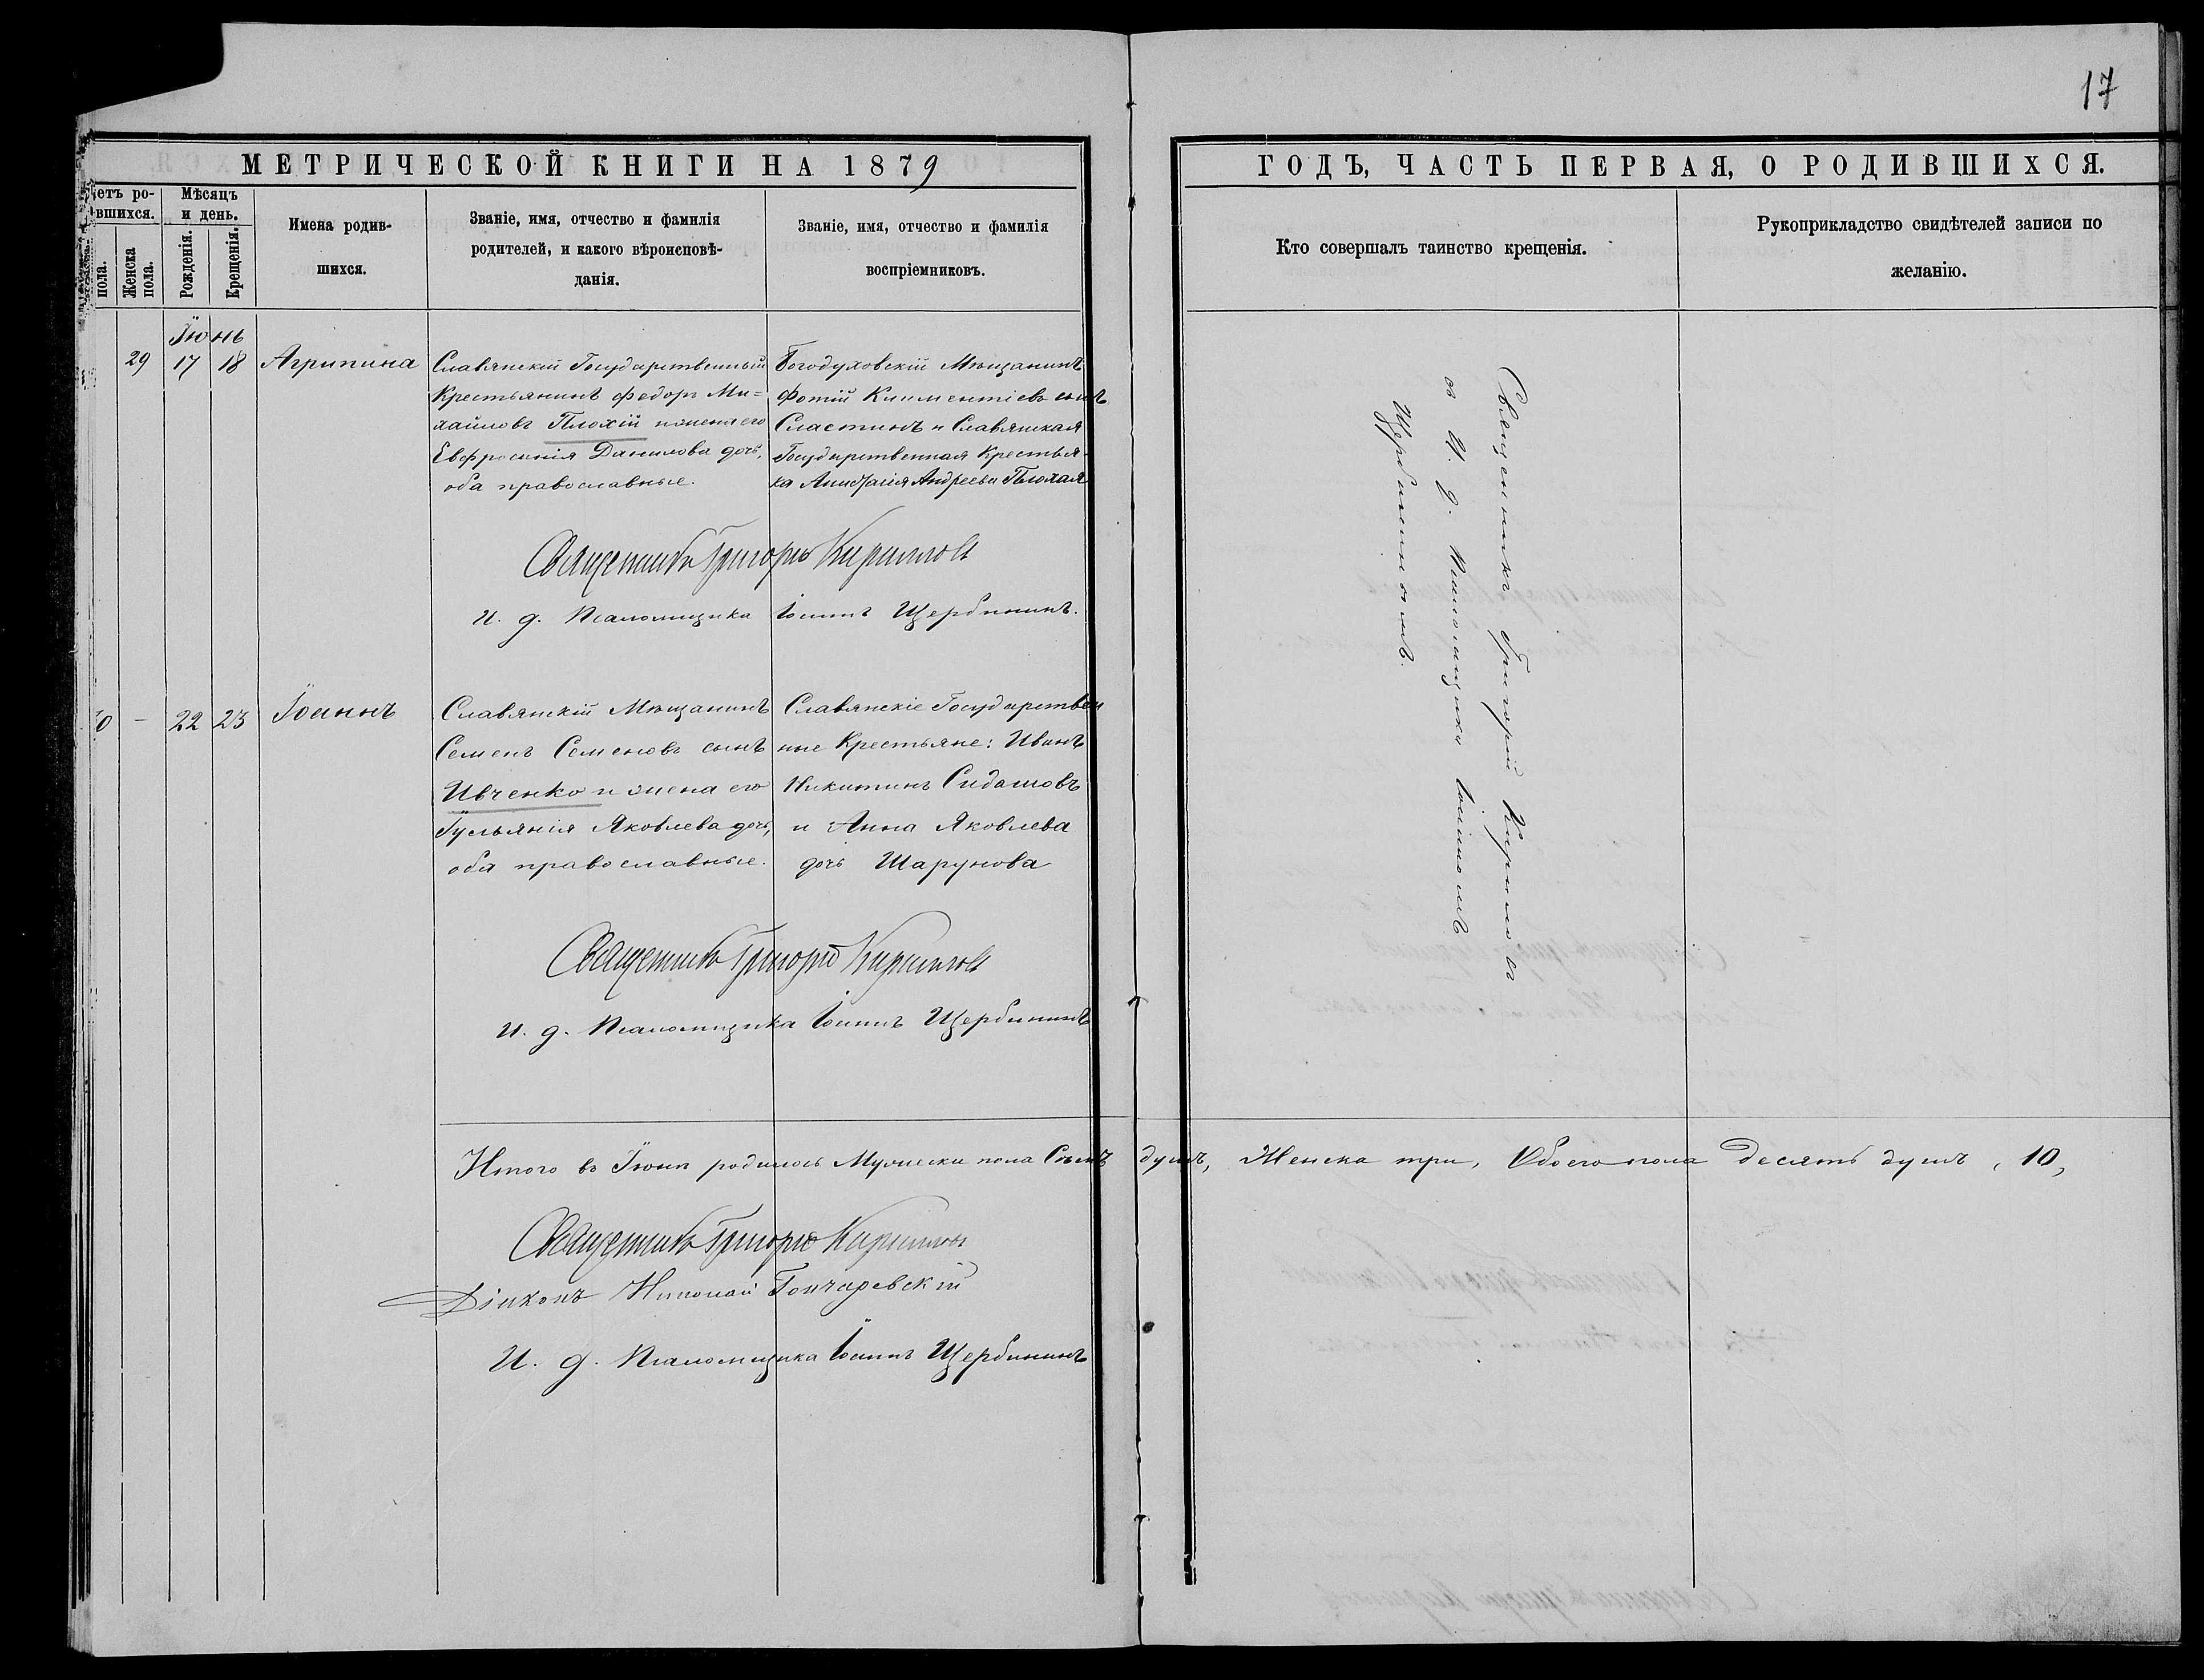 17
МЕТРИЧЕСКОЙ КНИГИ НА 1879
ГОДЪ, ЧАСТЬ ПЕРВАЯ, О РОДИВШИХСЯ.
етъ ро-
вшихся.
пола.
Женска пола.
Мѣсяцъ
и день.
Рожденія.
Крещенія.
Имена родив-
шихся.
Званіе, имя, отчество и фамилія
родителей, и какого вѣроисповѣ-
данія.
Званіе, имя, отчество и фамилія
воспріемниковъ.
Кто совершалъ таинство крещенія.
Рукоприкладство свидѣтелей записи по
желанію.
Іюнь
29 17 18 Агрипина
Славянскій Государственный
Крестьянинъ Федоръ Ми=
хайловъ Плохій и жена его
Евфросинія Данилова дочь,
оба православные.
Богодуховскій Мѣщанинъ
Фотій Климентіевъ сынъ
Сластинъ и Славянская
Государственная Крестья-
ка Анастасія Андреева Плохая
Священникъ Григорій Кирилловъ
И. д. Псаломщика Іоаннъ Щербининъ.
30 – 22 23 Іоаннъ
Славянскій Мѣщанинъ
Семенъ Семеновъ сынъ
Ивченко и жена его
Іульянія Яковлева дочь,
оба православные.
Славянскіе Государствен
ные Крестьяне: Иванъ
Никитинъ Сидашовъ
и Анна Яковлева
дочь Шарунова
Священникъ Григорій Кирилловъ
И. д. Псаломщика Іоаннъ Щербининъ
Священникъ Григорій Кириловъ
съ И. д. Псаломщика Іоанномъ
Щербининомъ.
Итого въ Іюнѣ родилось Мужеска пола Семь душъ, Женска три, Обоего пола Десять душъ, 10,
Священникъ Григорій Кирилловъ
Діаконъ Николай Гончаревскій
И. д. Псаломщика Іоаннъ Щербининъ